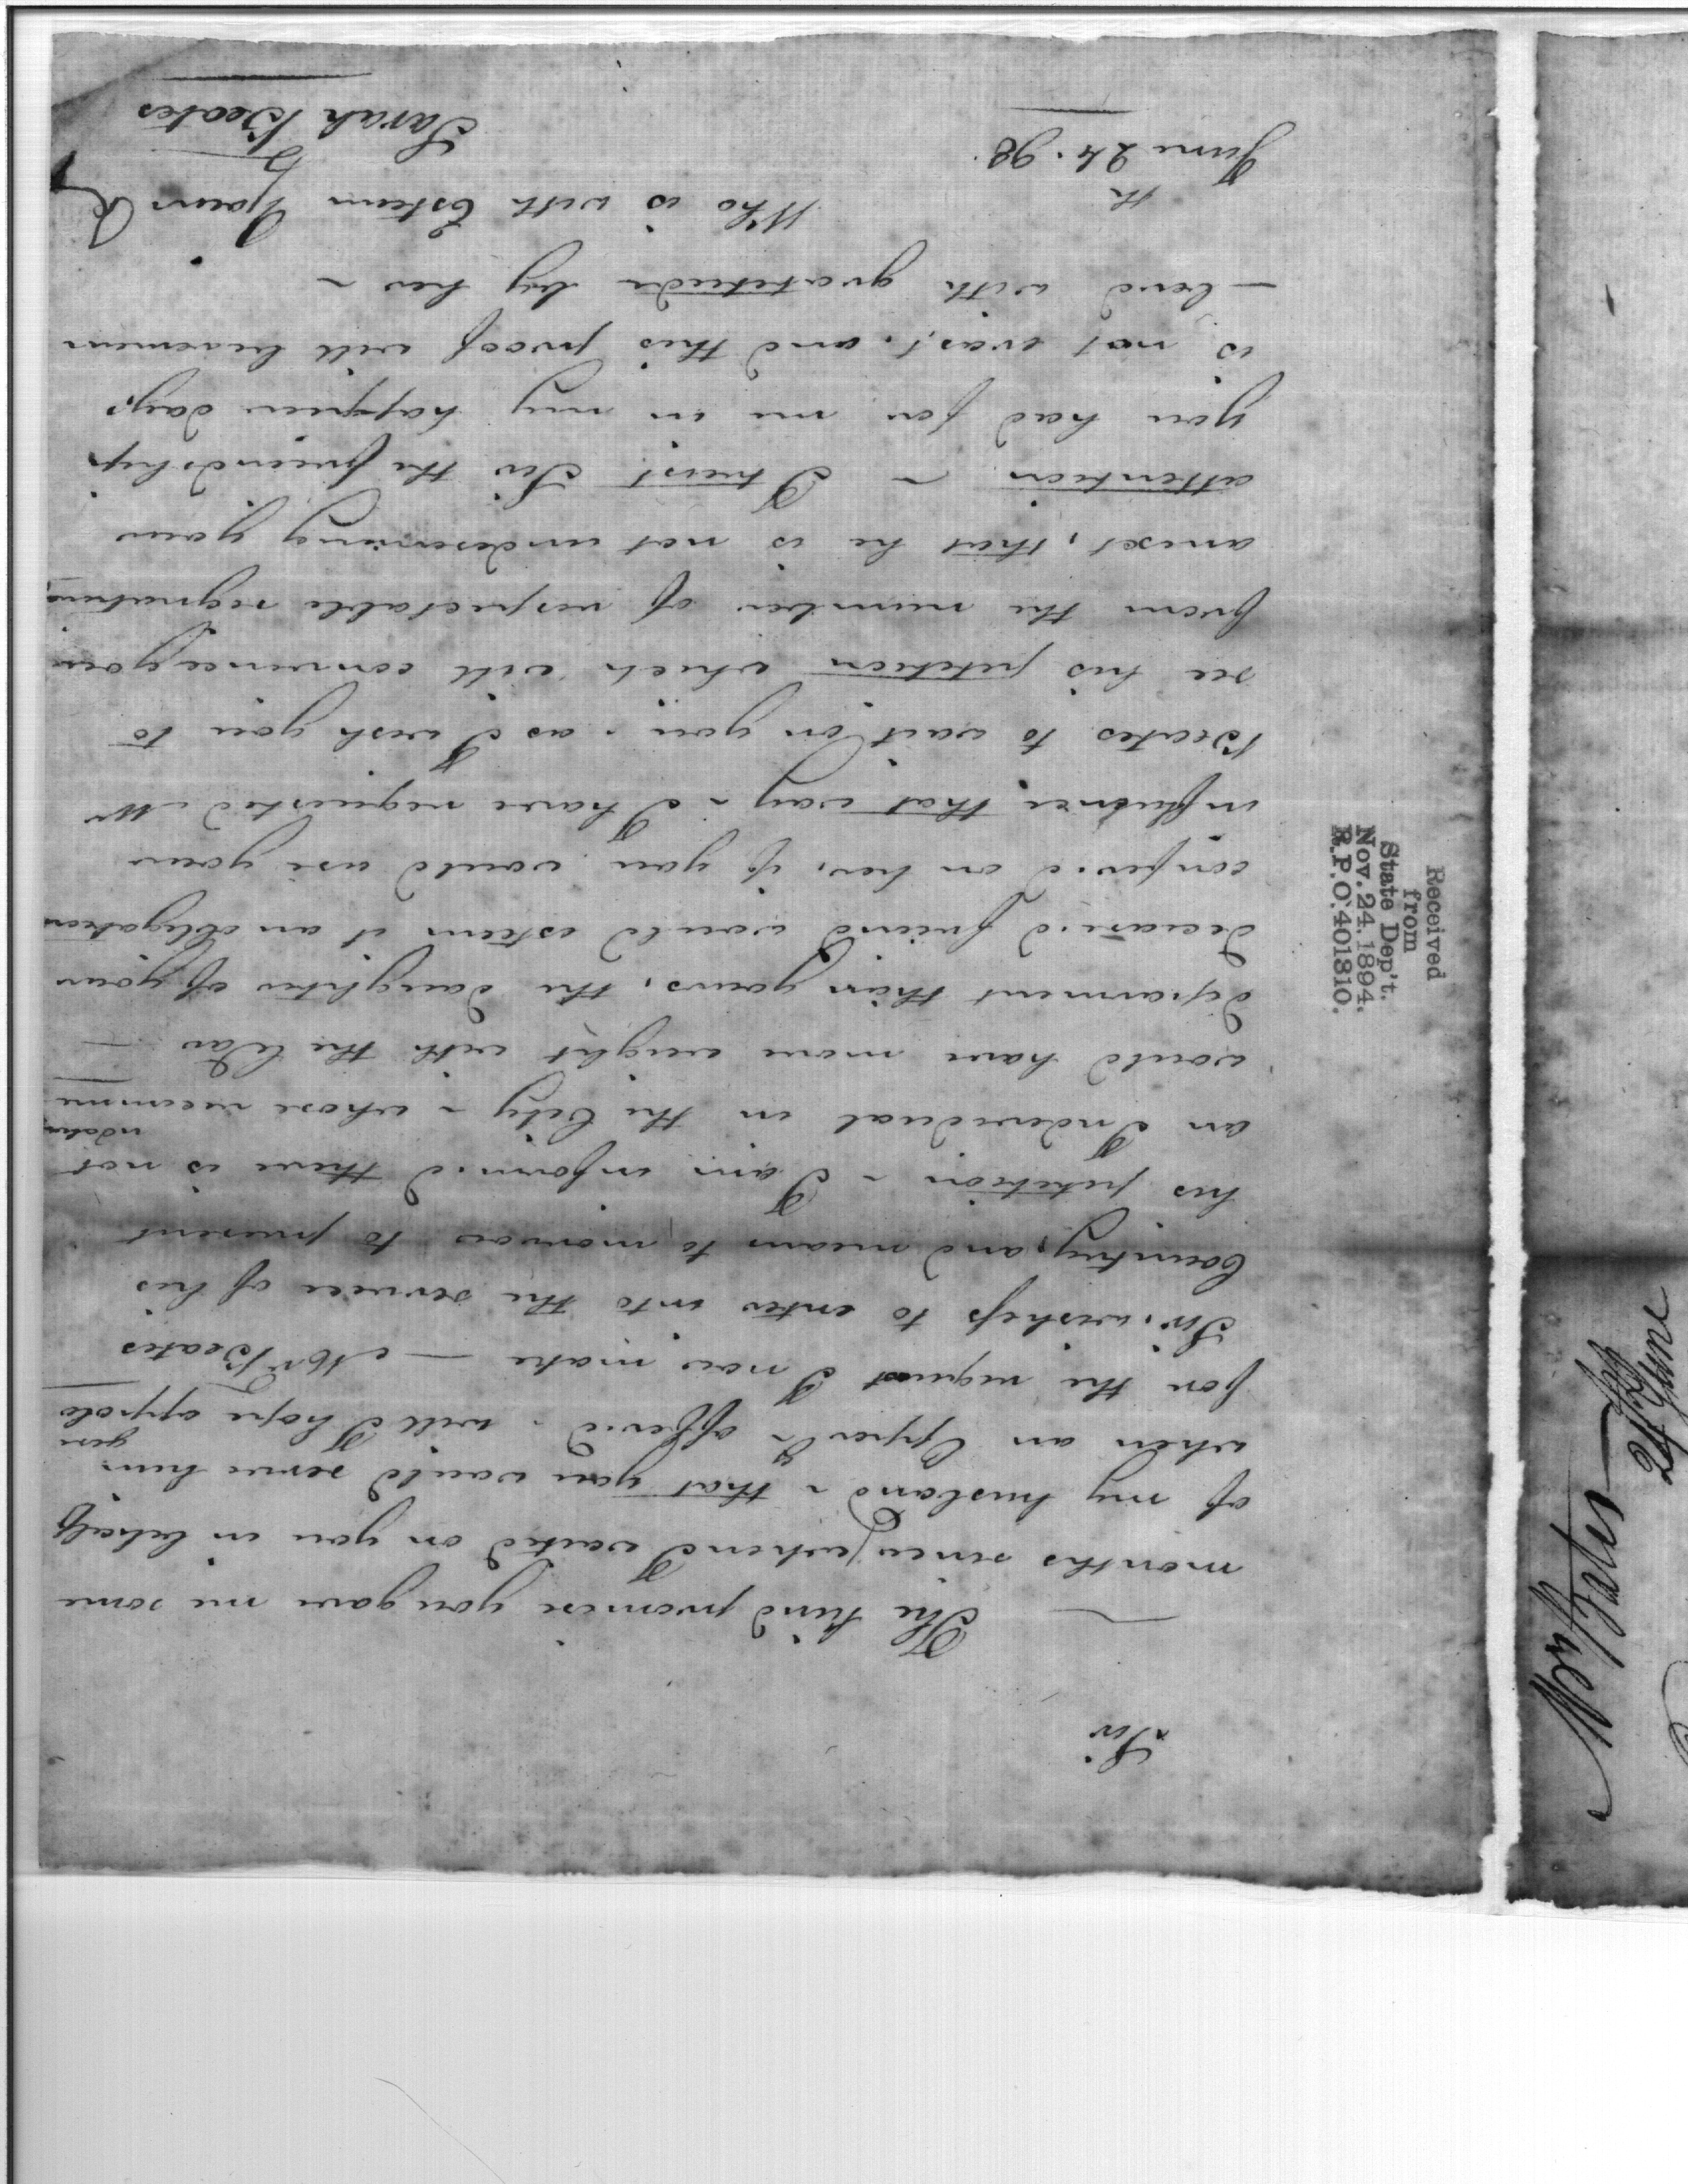 Sir
— The kind promise you gave me some
months since, when I waited on you in behalf
of my husband ~ that you would serve him
when an Opperty offer'd ~ will I hope appolo
gise
for the request I now make — Mr Beates
Sir, wishefs to enter into the service of his
Country, and means to morrow to present
his petition ~ I am inform'd there is not
an Individual in the City ~ whose recomme
ndation
would have more weight with the War —
Deparment than yours, the daughter of your
deceas'd friend would esteem it an obligation
confer'd on her, if you would use your
influence that way ~ I have requested Mr
Beates to wait on you, as I wish you to
see his petition which will convince you
from the number of respectable signatures
anext, that he is not undeserving your
attention ~ I trust Sir the friendship
you had for me in my happier days
is not eras'd, and this proof will be remem
— berd with gratitude by her ~
Who is with Esteem Yours &
Sarah Beates
June 24th. 98.
Received
from
State Dep't.
Nov. 24. 1894.
R.P.O. 401310.
Mrs Bates
24 June